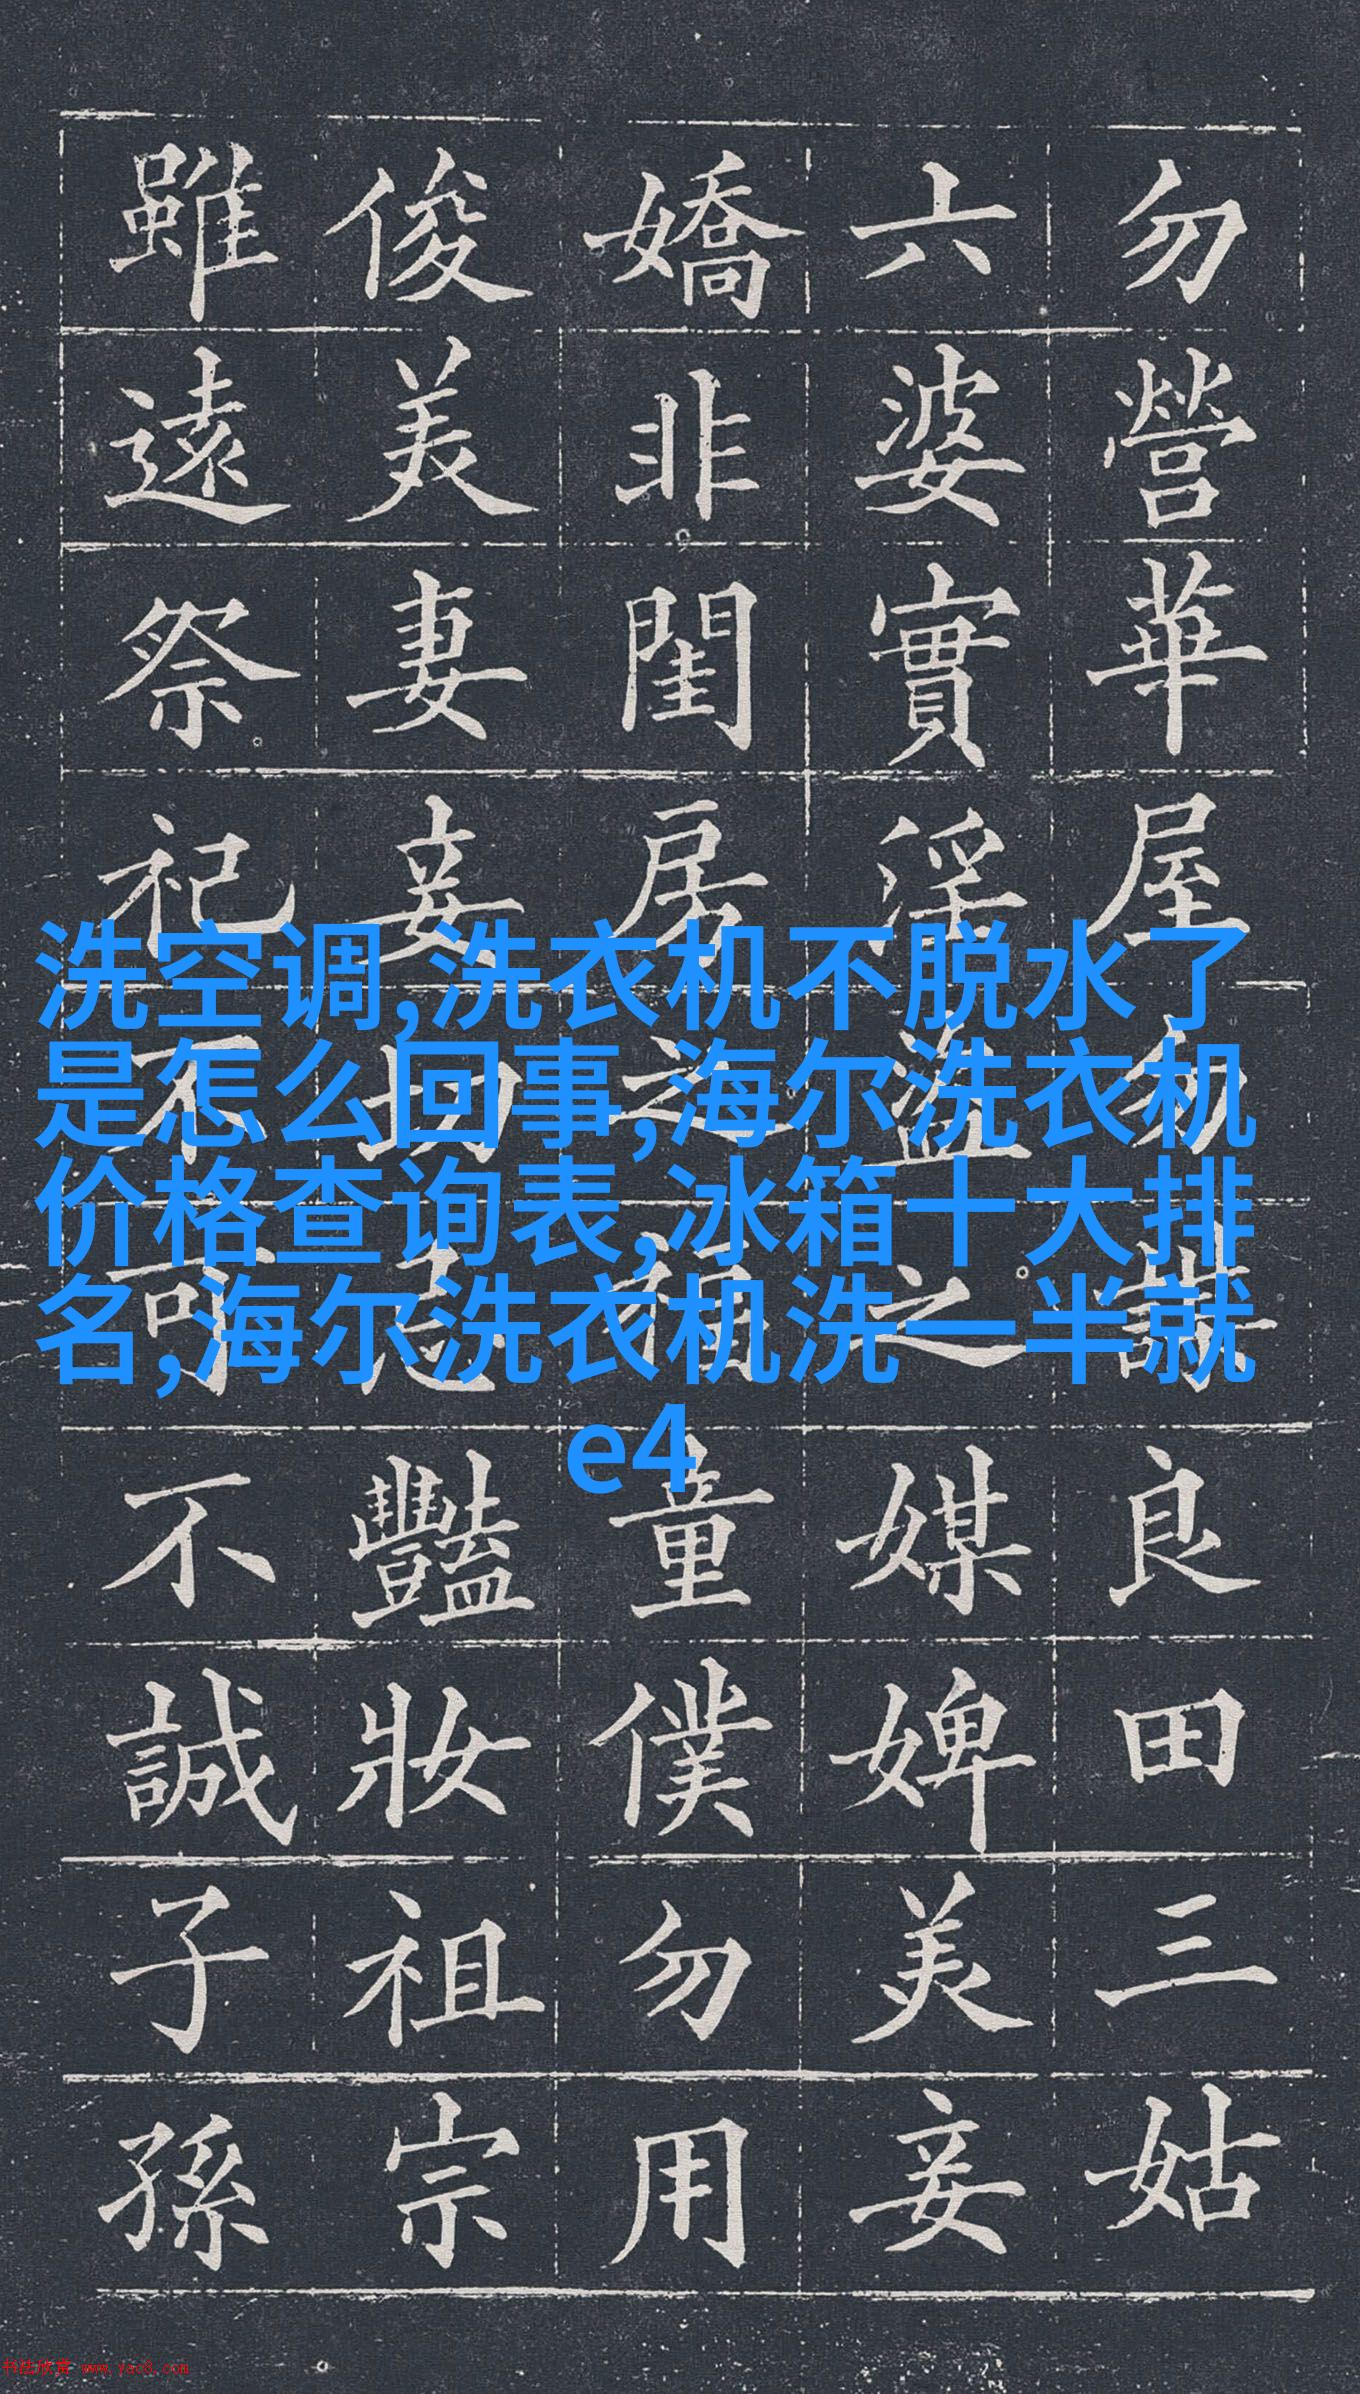 勿營華屋勿謀良田三姑
六婆實淫盜之媒婢美妾
嬌非閨房之福童僕勿用
俊美妻妾切忌豔妝祖宗
雖遠祭祀不可不誠子孫
洗空调,洗衣机不脱水了
是怎么回事,海尔洗衣机
价格查询表,冰箱十大排
名,海尔洗衣机洗一半就
e4
书法欣赏 www.yac8.com